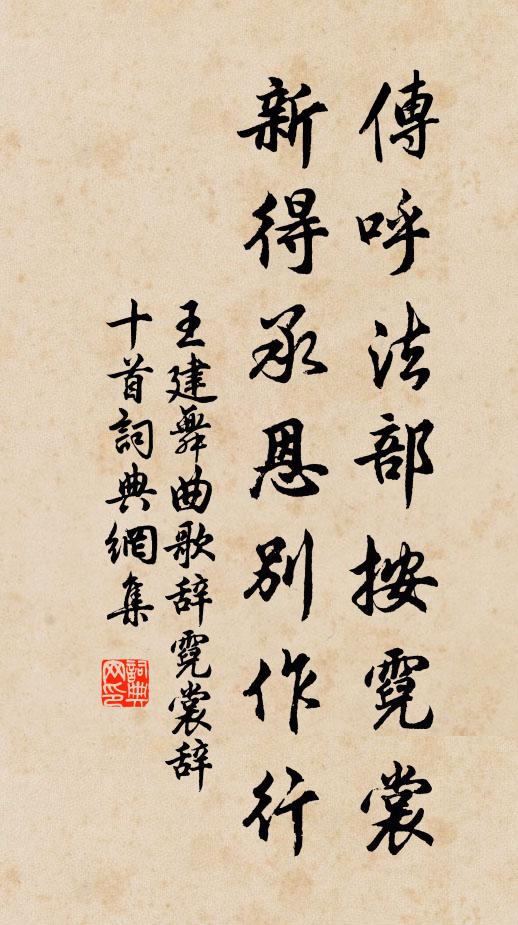 傳呼法部按霓裳
新得承恩別作行
王建舞曲歌辞霓裳辞
十首詞典網集
詞典網印